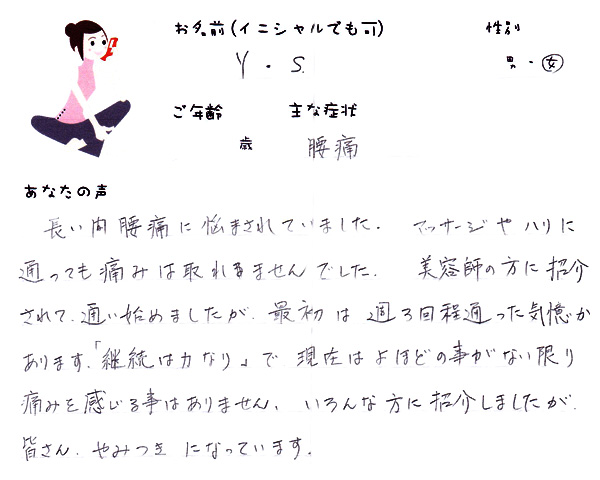 お名前(イニシャルでも可) 性別
Y・S. 男・女
ご年齢 主な症状
歳 腰痛
あなたの声
長い間腰痛に悩まされていました. マッサージやハリに
通っても痛みは取れませんでした. 美容師の方に紹介
されて.通い始めましたが.最初は週3回程通った気憶が
あります.「継続は力なり」で現在はよほどの事がない限り
痛みを感じる事はありません. いろんな方に紹介しましたが.
皆さん.やみつきになっています.